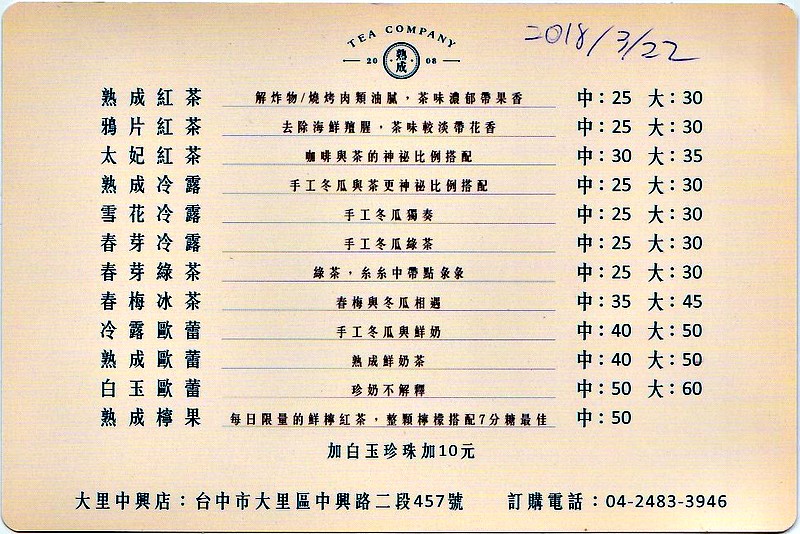 TEA COMPANY
2018/3/22
20 熟成 08
熟成紅茶 解炸物/燒烤肉類油膩，茶味濃郁帶果香 中：25 大：30
鴉片紅茶 去除海鮮羶腥，茶味較淡帶花香 中：25 大：30
太妃紅茶 咖啡與茶的神祕比例搭配 中：30 大：35
熟成冷露 手工冬瓜與茶更神祕比例搭配 中：25 大：30
雪花冷露 手工冬瓜獨奏 中：25 大：30
春芽冷露 手工冬瓜綠茶 中：25 大：30
春芽綠茶 綠茶，糸糸中帶點彔彔 中：25 大：30
春梅冰茶 春梅與冬瓜相遇 中：35 大：45
冷露歐蕾 手工冬瓜與鮮奶 中：40 大：50
熟成歐蕾 熟成鮮奶茶 中：40 大：50
白玉歐蕾 珍奶不解釋 中：50 大：60
熟成檸果 每日限量的鮮檸紅茶，整顆檸檬搭配7分糖最佳 中：50
加白玉珍珠加10元
大里中興店：台中市大里區中興路二段457號 訂購電話：04-2483-3946